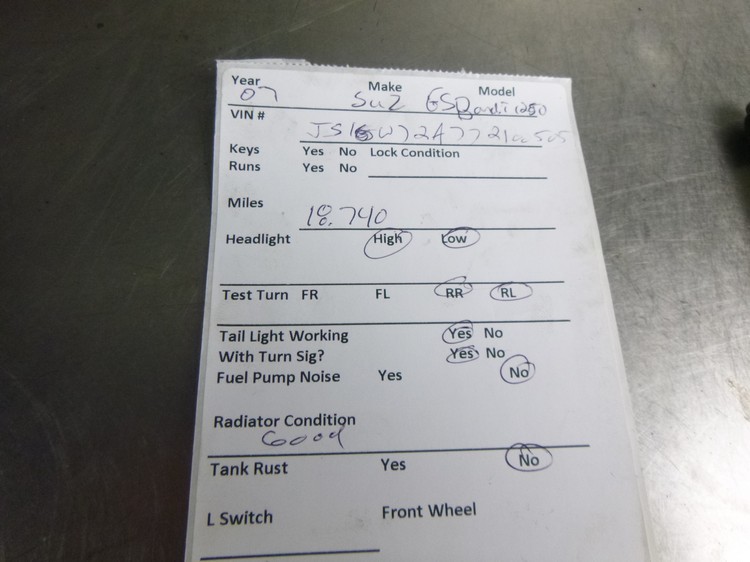 Year Make Model
07 Suz GS Bandit 1250
VIN #
Keys Yes No Lock Condition
Runs Yes No
Miles 18.740
Headlight High Low
Test Turn FR FL RR RL
Tail Light Working Yes No
With Turn Sig? Yes No
Fuel Pump Noise Yes No
Radiator Condition
Good
Tank Rust Yes No
L Switch Front Wheel